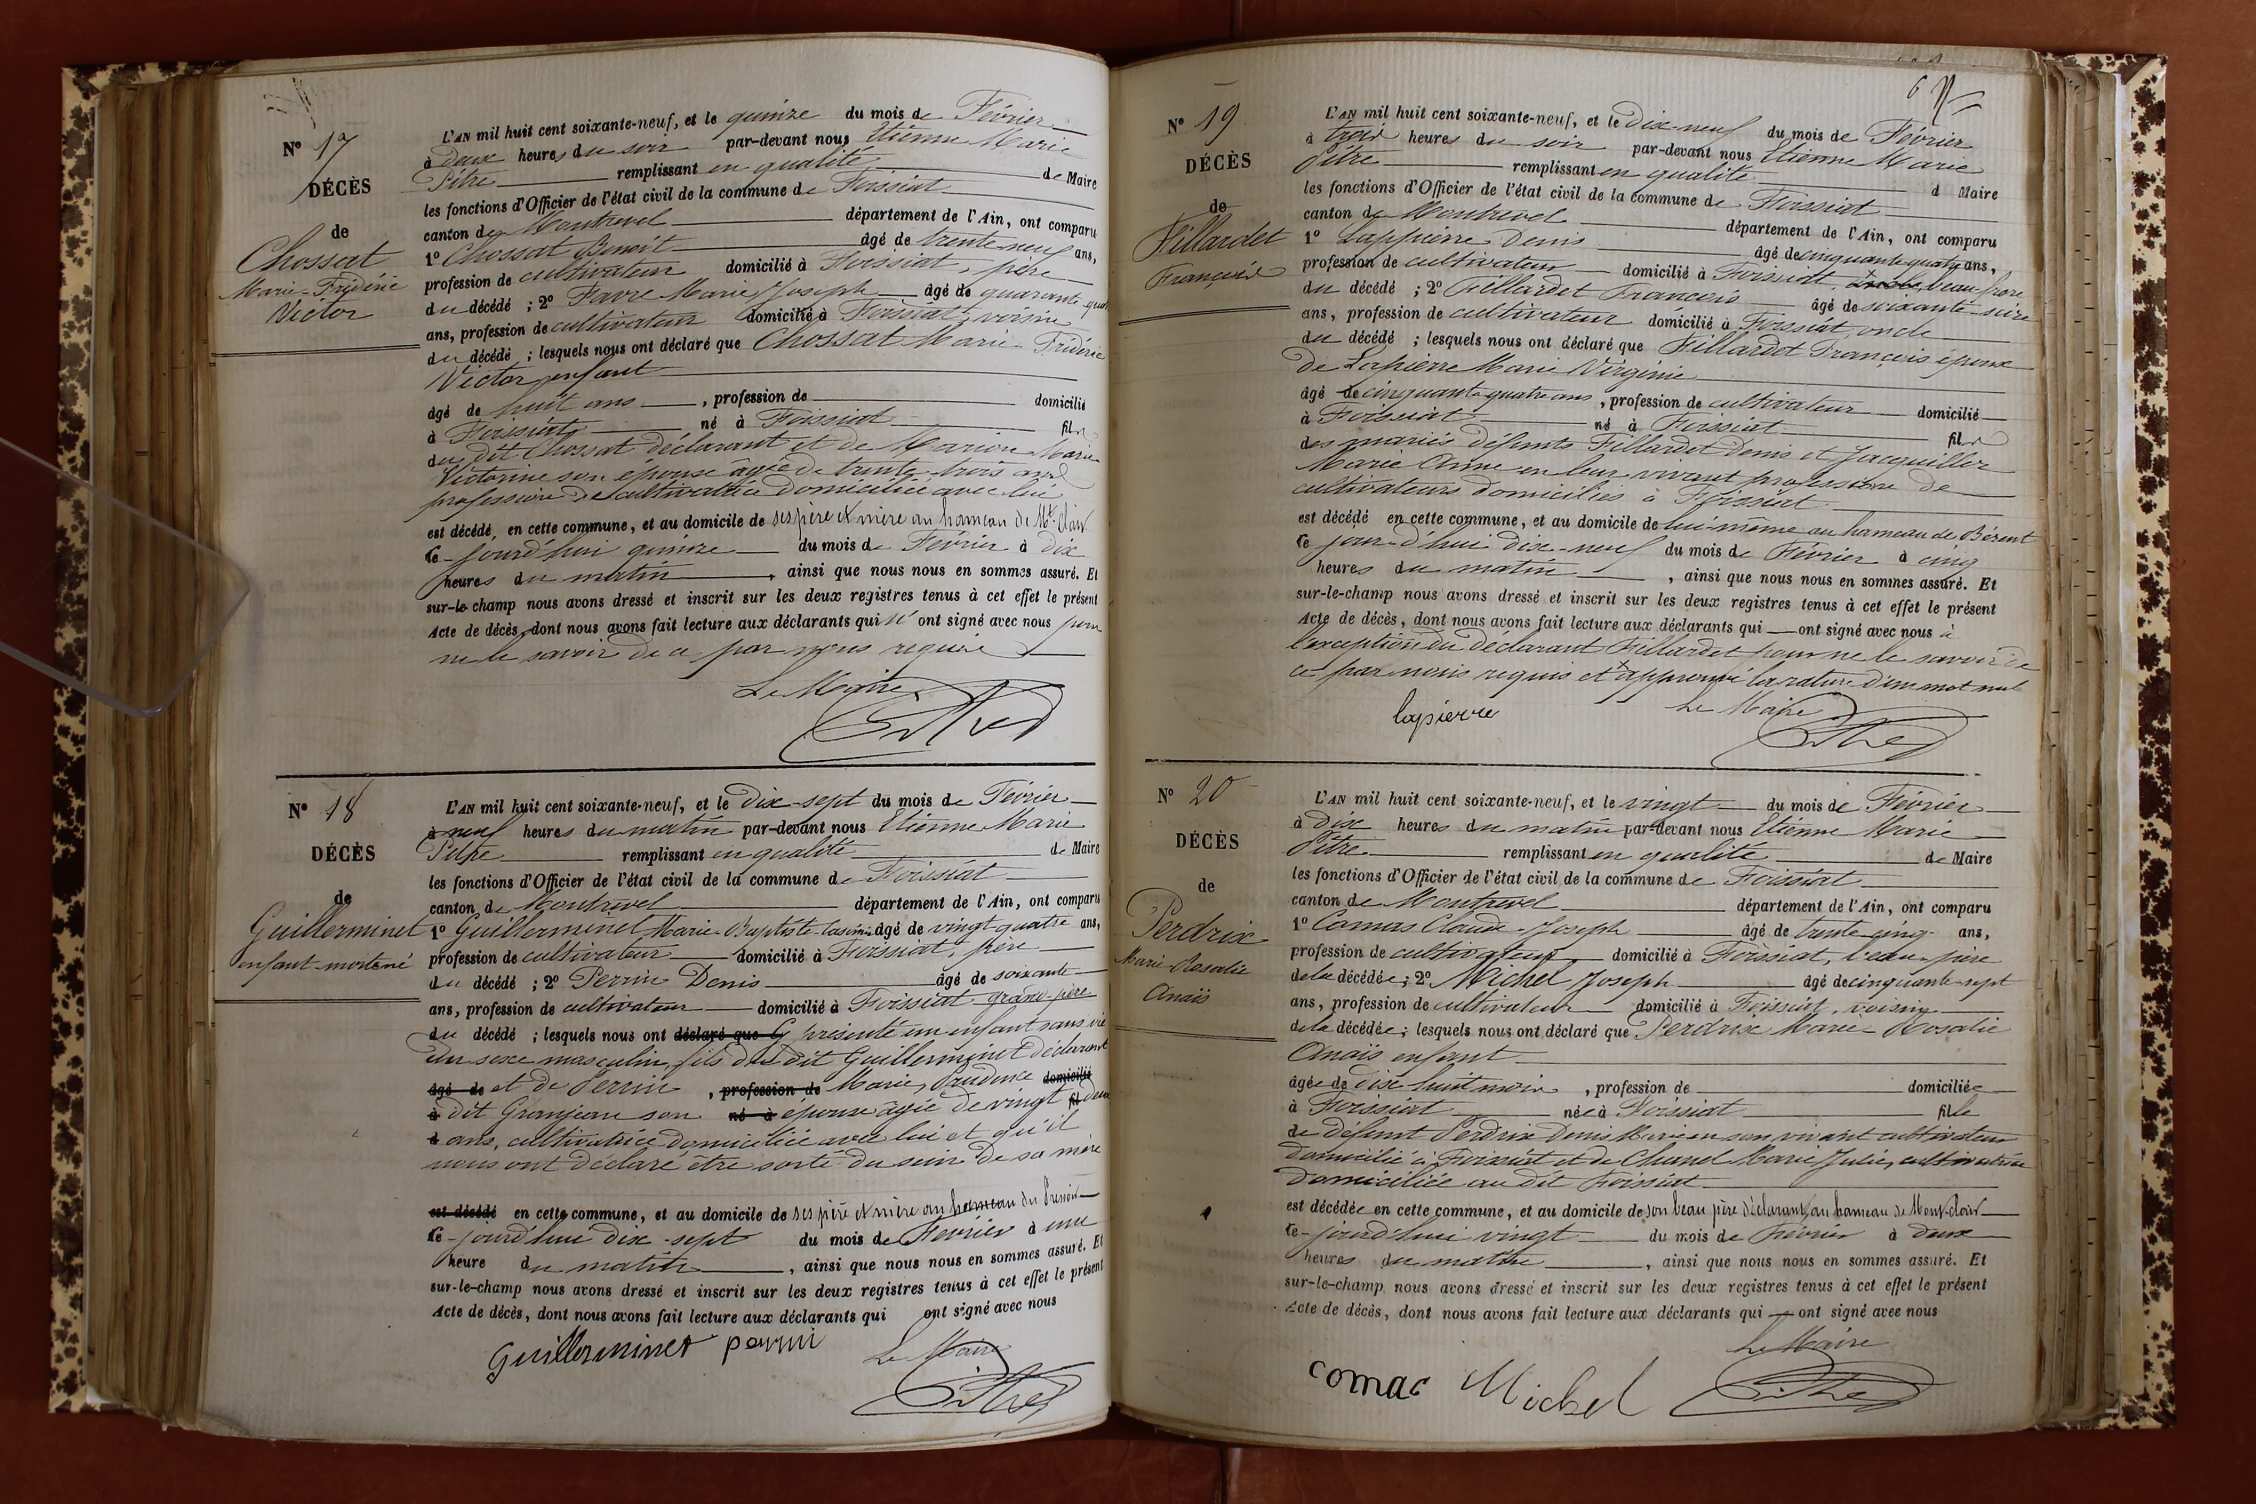 N° 17
DÉCÈS
de
Chossat
Marie-Frédéric
Victor
L'AN mil huit cent soixante-neuf, et le quinze du mois de Février
à deux heures du soir par-devant nous Etienne Marie
Pitre remplissant en qualité de Maire
les fonctions d'Officier de l'état civil de la commune de Foissiat
canton de Montrevel département de l'Ain, ont comparu
1° Chossat Benoit âgé de trente-neuf ans,
profession de cultivateur domicilié à Foissiat, père
du décédé ; 2° Favre Marie Joseph âgé de quarante quatre
ans, profession de cultivateur domicilié à Foissiat, voisin
du décédé ; lesquels nous ont déclaré que Chossat Marie-Frédéric
Victor enfant
âgé de huit ans , profession de domicilié
à Foissiat né à Foissiat fils
du dit Chossat déclarant et de Marion Marie
Victorine son épouse âgée de trente-trois ans
profession de cultivatrice domiciliée avec lui
est décédé, en cette commune, et au domicile de ses père et mère au hameau de Mt Clair
ce jourd'hui quinze du mois de Février à dix
heures du matin , ainsi que nous nous en sommes assuré. Et
sur-le-champ nous avons dressé et inscrit sur les deux registres tenus à cet effet le présent
Acte de décès, dont nous avons fait lecture aux déclarants qui n' ont signé avec nous pour
ne le savoir de ce par nous requis
Le Maire
Pitre
N° 18
DÉCÈS
de
Guillerminet
enfant mort-né
L'AN mil huit cent soixante-neuf, et le dix-sept du mois de Février
à neuf heures du matin par-devant nous Etienne Marie
Pitre remplissant en qualité de Maire
les fonctions d'Officier de l'état civil de la commune de Foissiat
canton de Montrevel département de l'Ain, ont comparu
1° Guillerminet Marie-Baptiste-Casimir âgé de vingt quatre ans,
profession de cultivateur domicilié à Foissiat, père
du décédé ; 2° Perrin Denis âgé de soixante
ans, profession de cultivateur domicilié à Foissiat grand-père
du décédé ; lesquels nous ont déclaré que G présenté un enfant sans vie
du sexe masculin, fils du dit Guillerminet déclarant
âgé de et de Perrin , profession de Marie, Prudence domicilié
à dit Granjean son né à épouse âgée de vingt fil deux
d ans, cultivatrice domiciliée avec lui et qu'il
nous ont déclaré être sorti du sein de sa mère
est décédé en cette commune, et au domicile de ses père et mère au hameau du
ce jourd'hui dix-sept du mois de Février à une
heure du matin , ainsi que nous nous en sommes assuré. Et
sur-le-champ nous avons dressé et inscrit sur les deux registres tenus à cet effet le présent
Acte de décès, dont nous avons fait lecture aux déclarants qui ont signé avec nous
Guillerminet perrin Le Maire
Pitre
6
N° 19
DÉCÈS
de
Fillardet
François
L'AN mil huit cent soixante-neuf, et le dix-neuf du mois de Février
à trois heures du soir par-devant nous Etienne Marie
Pitre remplissant en qualité d Maire
les fonctions d'Officier de l'état civil de la commune de Foissiat
canton de Montrevel département de l'Ain, ont comparu
1° Lappierre Denis âgé de cinquante quatre ans,
profession de cultivateur domicilié à Foissiat, beau-frère
du décédé ; 2° Fillardet François âgé de soixante-seize
ans, profession de cultivateur domicilié à Foissiat, oncle
du décédé ; lesquels nous ont déclaré que Fillardet François époux
de Lapierre Marie Virginie
âgé de cinquante quatre ans , profession de cultivateur domicilié
à Foissiat né à Foissiat fils
des mariés défunts Fillardet Denis et Jacquiller
Marie Anne en leur vivant profession de
cultivateurs domiciliés à Foissiat
est décédé en cette commune, et au domicile de lui-même au hameau de Bérent
ce jour-d'hui dix-neuf du mois de Février à cinq
heures du matin , ainsi que nous nous en sommes assuré. Et
sur-le-champ nous avons dressé et inscrit sur les deux registres tenus à cet effet le présent
Acte de décès, dont nous avons fait lecture aux déclarants qui ont signé avec nous à
l'exception du déclarant Fillardet pour ne le savoir de
ce par nous requis et approuvé la rature d'un mot nul
lapierre Le Maire
Pitre
N° 20
DÉCÈS
de
Perdrix
Marie-Rosalie
Anaïs
L'AN mil huit cent soixante-neuf, et le vingt du mois de Février
à dix heures du matin par-devant nous Etienne Marie
Pitre remplissant en qualité de Maire
les fonctions d'Officier de l'état civil de la commune de Foissiat
canton de Montrevel département de l'Ain, ont comparu
1° Comas Claude-Joseph âgé de trente cinq ans,
profession de cultivateur domicilié à Foissiat, beau-père
de la décédée ; 2° Michel Joseph âgé de cinquante-sept
ans, profession de cultivateur domicilié à Foissiat, voisin
de la décédée ; lesquels nous ont déclaré que Perdrix Marie-Rosalie
Anaïs enfant
âgée de dix huit mois , profession de domiciliée
à Foissiat née à Foissiat fille
de défunt Perdrix Denis Marie en son vivant cultivateur
domicilié à Foissiat et de Chanel Marie Julie, cultivatrice
domiciliée au dit Foissiat
est décédée en cette commune, et au domicile de son beau père déclarant, au hameau de Mont-Clair
ce jourd'hui vingt du mois de Février à deux
heures du matin , ainsi que nous nous en sommes assuré. Et
sur-le-champ nous avons dressé et inscrit sur les deux registres tenus à cet effet le présent
Acte de décès, dont nous avons fait lecture aux déclarants qui ont signé avec nous
Le Maire
comas Michel Pitre